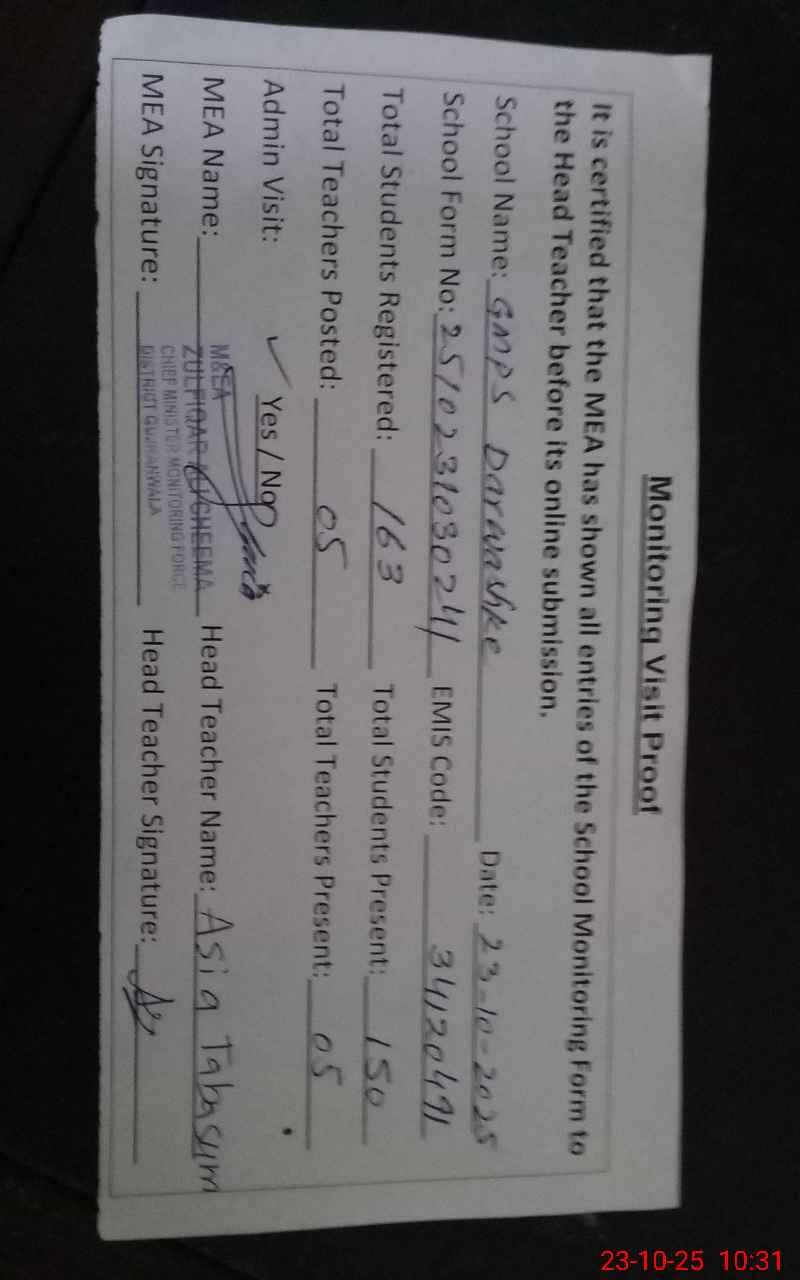 Monitoring Visit Proof
It is certified that the MEA has shown all entries of the School Monitoring Form to
the Head Teacher before its online submission.
School Name: GMPS Daranshke Date: 23-10-2025
School Form No: 2510231030241 EMIS Code: 34120491
Total Students Registered: 163 Total Students Present: 150
Total Teachers Posted: 05 Total Teachers Present: 05
Admin Visit: ✓ Yes / No
MEA Name: Head Teacher Name: Asia Tabasum
M&EA
ZULFIQAR ALI CHEEMA
CHIEF MINISTER MONITORING FORCE
DISTRICT GUJRANWALA
MEA Signature: Head Teacher Signature:
23-10-25 10:31